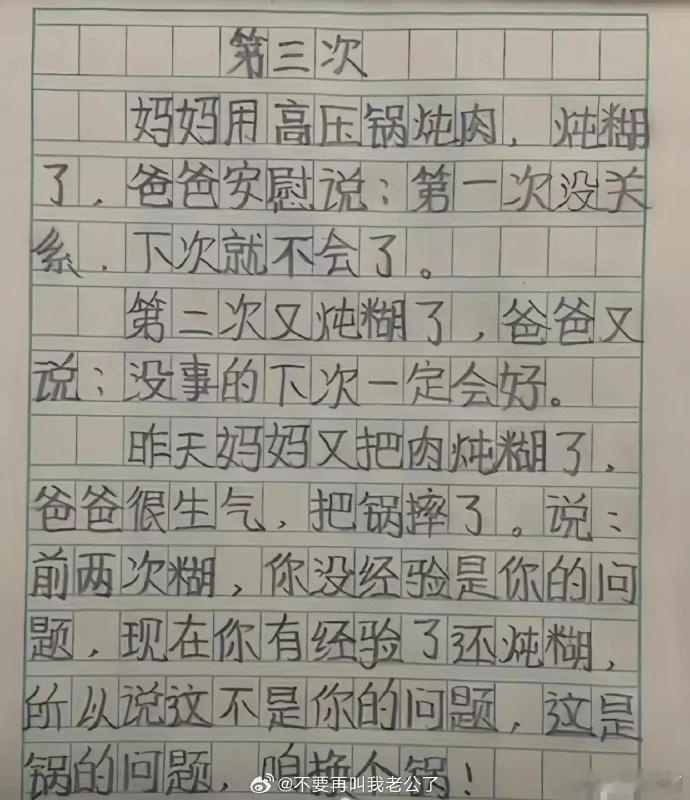 第三次
妈妈用高压锅炖肉，炖糊
了，爸爸安慰说：第一次没关
系，下次就不会了。
第二次又炖糊了，爸爸又
说：没事的下次一定会好。
昨天妈妈又把肉炖糊了，
爸爸很生气，把锅摔了。说：
前两次糊，你没经验是你的问
题，现在你有经验了还炖糊，
所以说这不是你的问题，这是
锅的问题，咱换个锅！
@不要再叫我老公了